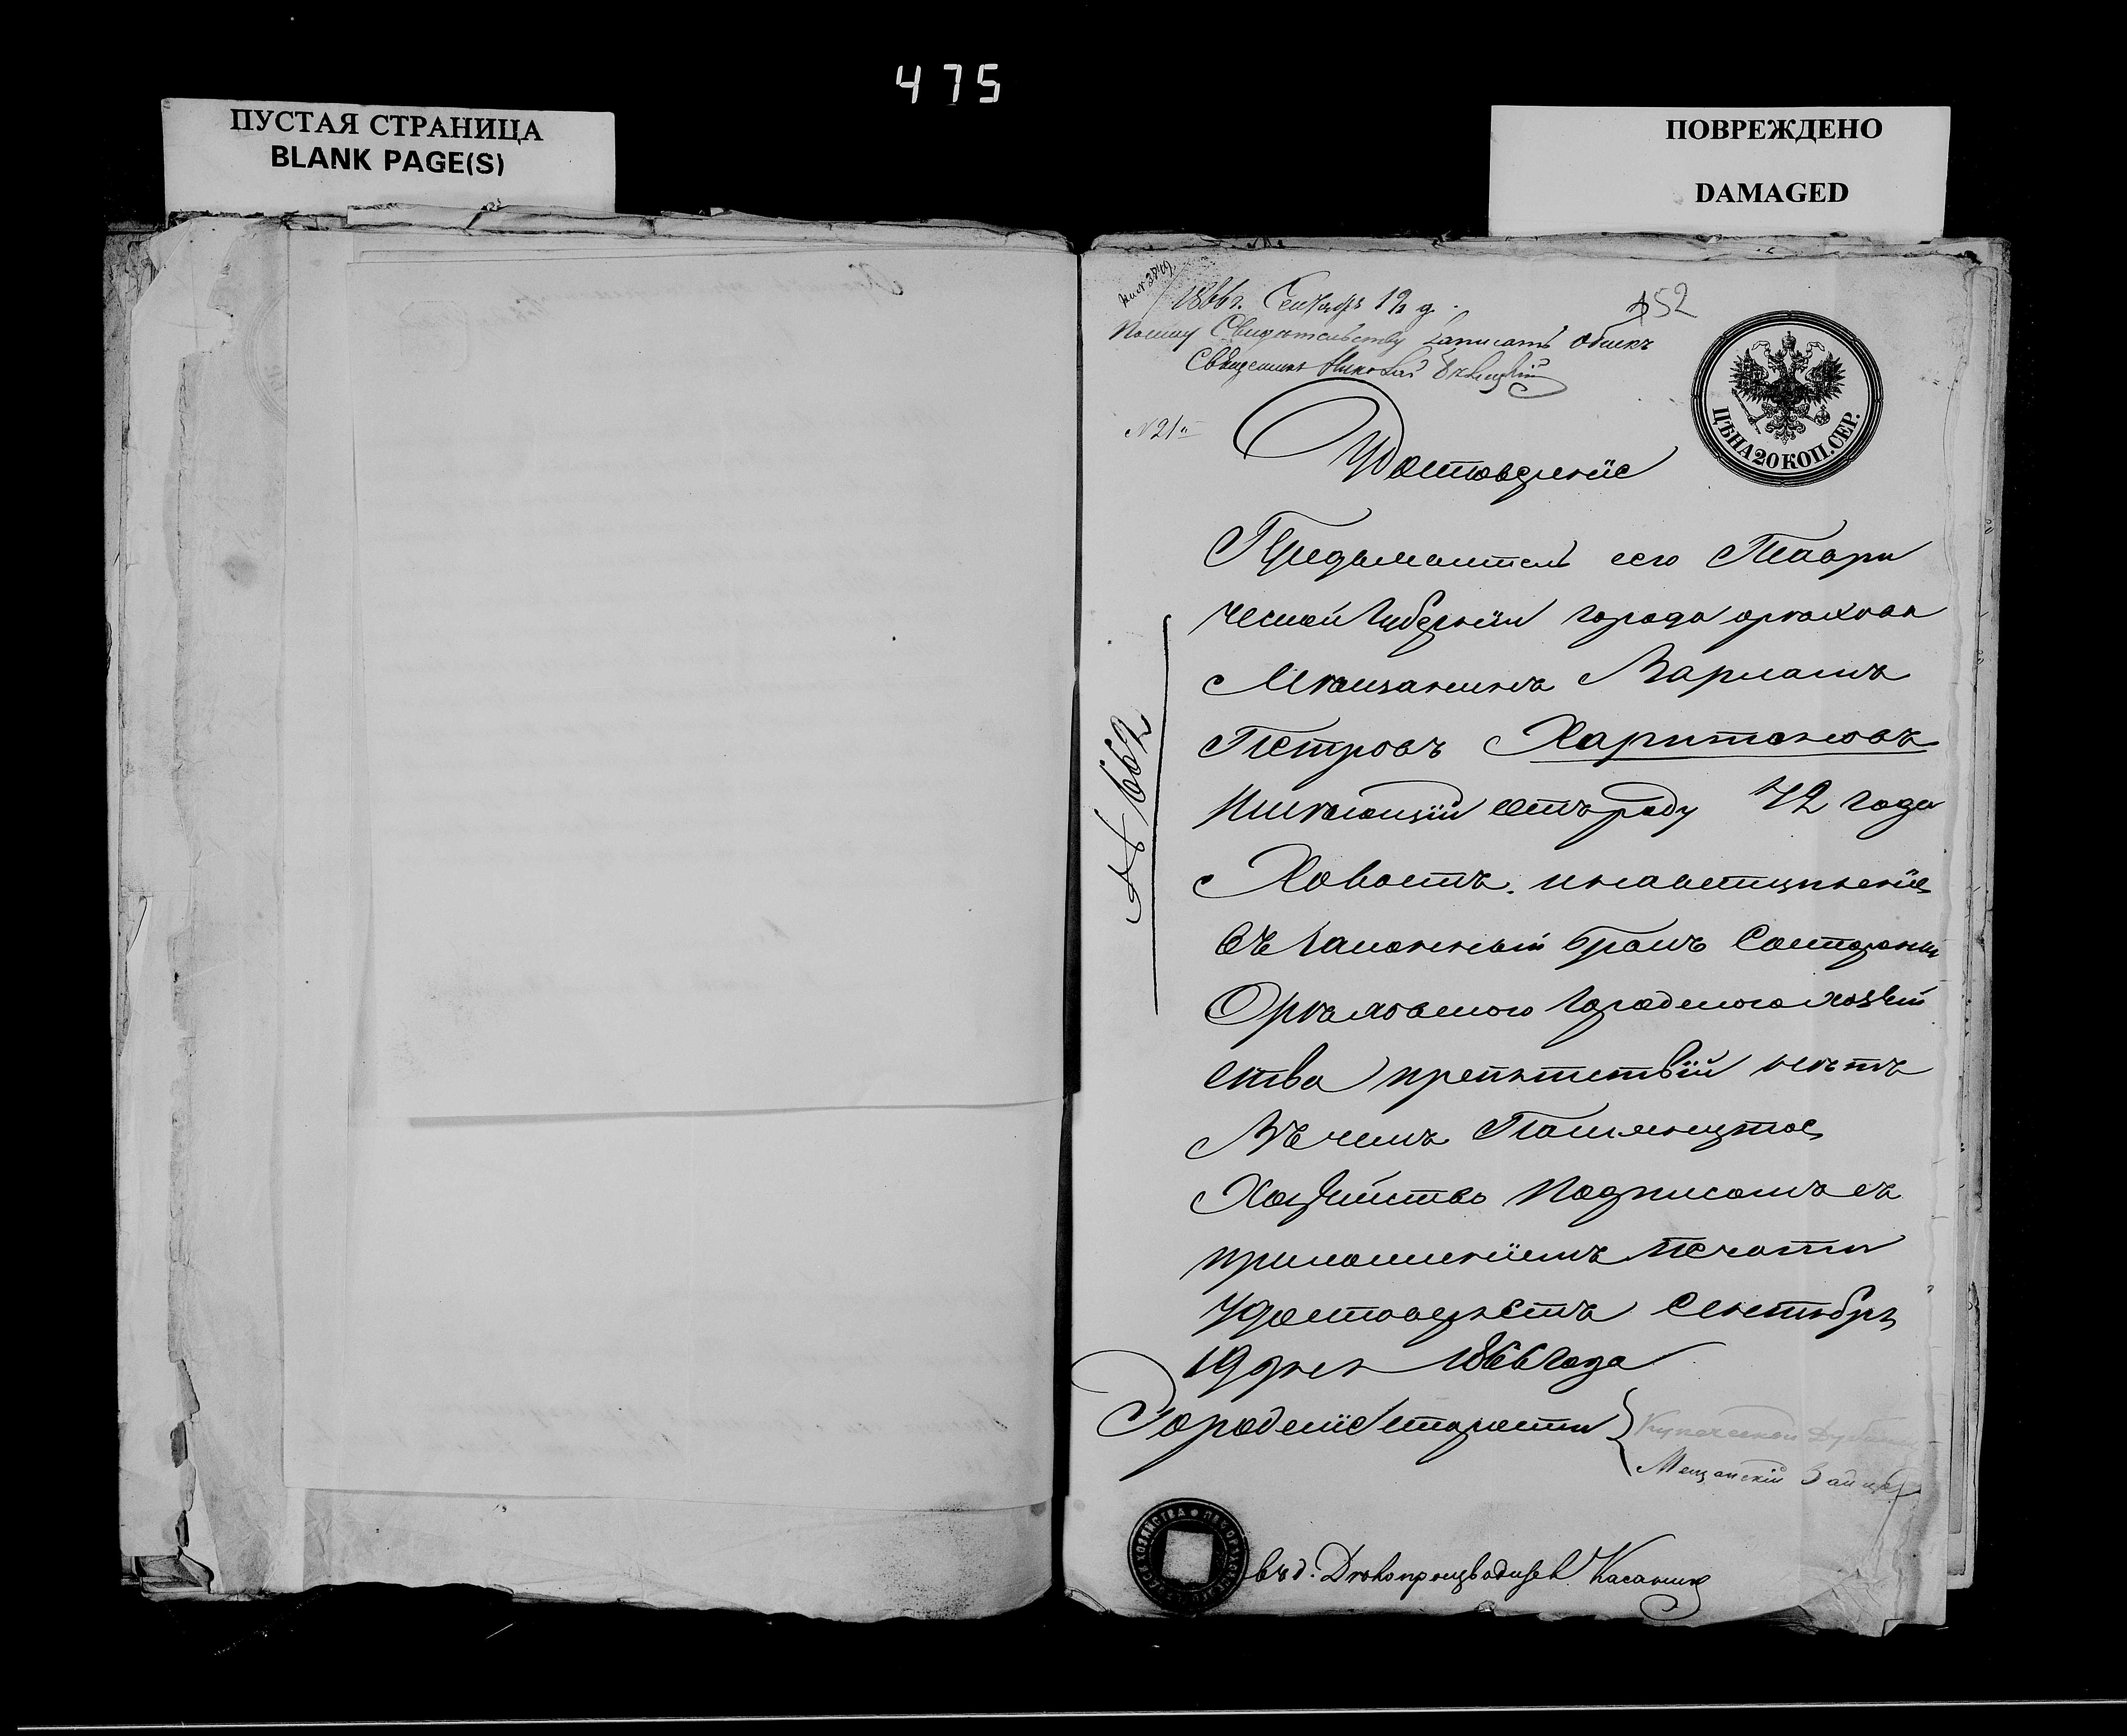 475
ПУСТАЯ СТРАНИЦА
BLANK PAGE(S)
ПОВРЕЖДЕНО
DAMAGED
1866 г. Сентября 19 д.
52
Свидетельству записать обыск
Священник Николай
ЦѢНА 20 КОП. СЕР.
N 21
Удостоверенiе
Предъявитель сего Таври
ческой Губернiи города орѣхова
Мѣщанинъ Варламъ
Петровъ Харитоновъ
имѣющiй отъ роду 42 года
Холостъ. и на вступленiе
въ законный бракъ состороны
Орѣховского Городского хозяй
ства препятствiй нетъ
Въ чемъ
Хозяйство подписомъ съ
приложенiемъ печати
удостоверяетъ Сентября
19 дня 1866 года
№ 662
Городскiе старости
Купеческой
Мещанскiй Зайцев
Делопроизводитель Касаткин